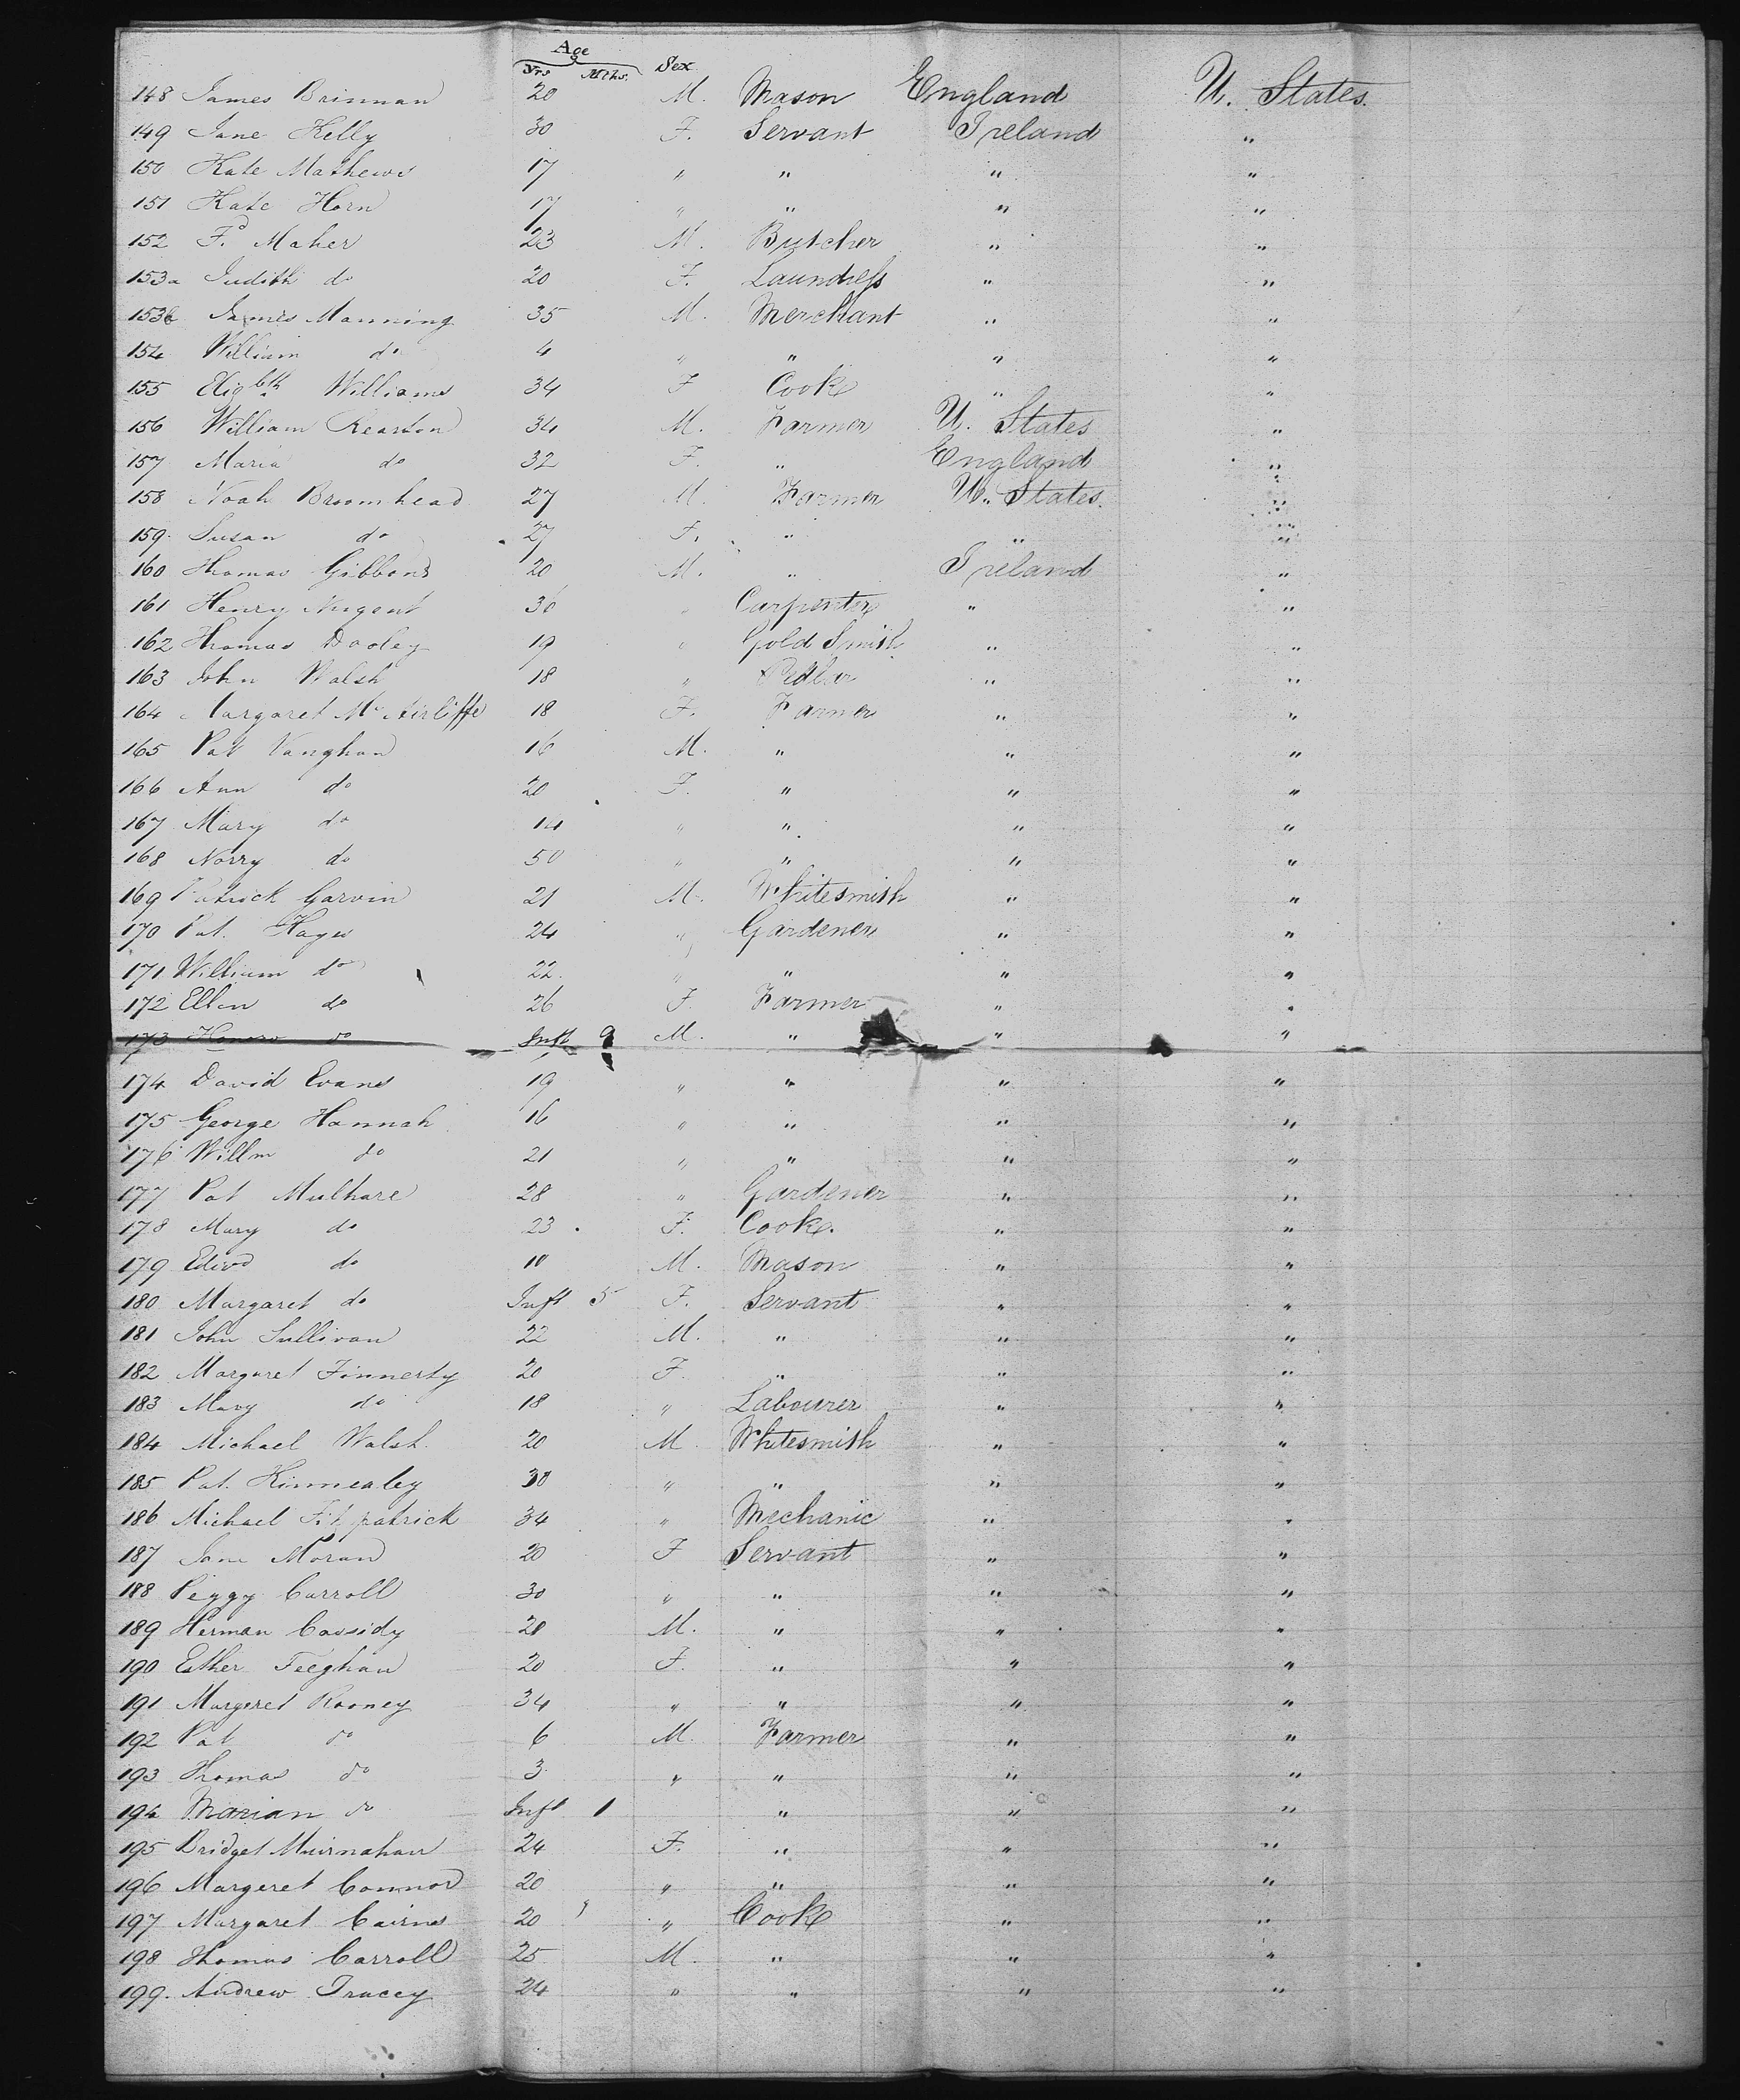 Age
Yrs Mths. Sex
148 James Brinnan 20 M. Mason England U. States.
149 Jane Kelly 30 F. Servant Ireland "
150 Kate Mathews 17 " " " "
151 Kate Horn 17 " " " "
152 F. Maher 23 M. Butcher " "
153a Judith do 20 F. Laundress " "
153b James Manning 35 M. Merchant " "
154 William do 4 " " " "
155 Elizbth Williams 34 F Cook " "
156 William Rearton 34 M. Farmer U. States "
157 Maria do 32 F. " England "
158 Noah Broomhead 27 M. Farmer U. States. "
159. Susan do 27 F. " " "
160 Thomas Gibbons 20 M. " Ireland "
161 Henry Nugent 36 " Carpenter " "
162 Thomas Dooley 19 " Gold Smith " "
163 John Walsh 18 " Pedlar " "
164 Margaret Mc 18 F. Farmer " "
165 Pat Vaughan 16 M. " " "
166 Ann do 20 F. " " "
167 Mary do " " " "
168 Norry do 50 " " " "
169 Patrick Garvin 21 M. Whitesmith " "
170 Pat. Hayes 24 " Gardener " "
171 William do 22. " " " "
172 Ellen do 26 F. Farmer " "
173 Honora do Inft 9 M. " " "
174 David Evans 19 " " " "
175 George Hannah 16 " " " "
176 Willm do 21 " " " "
177 Pat Mulhare 28 " Gardener " "
178 Mary do 23 F. Cook. " "
179 Edwd do 10 M. Mason " "
180 Margaret do Inft 5 F. Servant " "
181 John Sullivan 22 M. " " "
182 Margaret Finnerty 20 F. " " "
183 Mary do 18 " Labourer " "
184 Michael Walsh. 20 M Whitesmith " "
185 Pat. Kinnealey 30 " " " "
186 Michael Fitzpatrick 34 " Mechanic " "
187 Jane Moran 20 F Servant " "
188 Peggy Carroll 30 " " " "
189 Herman Cassidy 20 M. " " "
190 Esther Feeghan 20 F. " " "
191 Margeret Rooney 34 " " " "
192 Pat do 6 M. Farmer " "
193 Thomas do 3 " " " "
194 Marian do Inft 1 " " "
195 Bridget Muirnahan 24 F. " " "
196 Margeret Connor 20 " " " "
197 Margaret Cairns 20 " Cook " "
198 Thomas Carroll 25 M. " " "
199. Andrew Tracey 24 " " " "